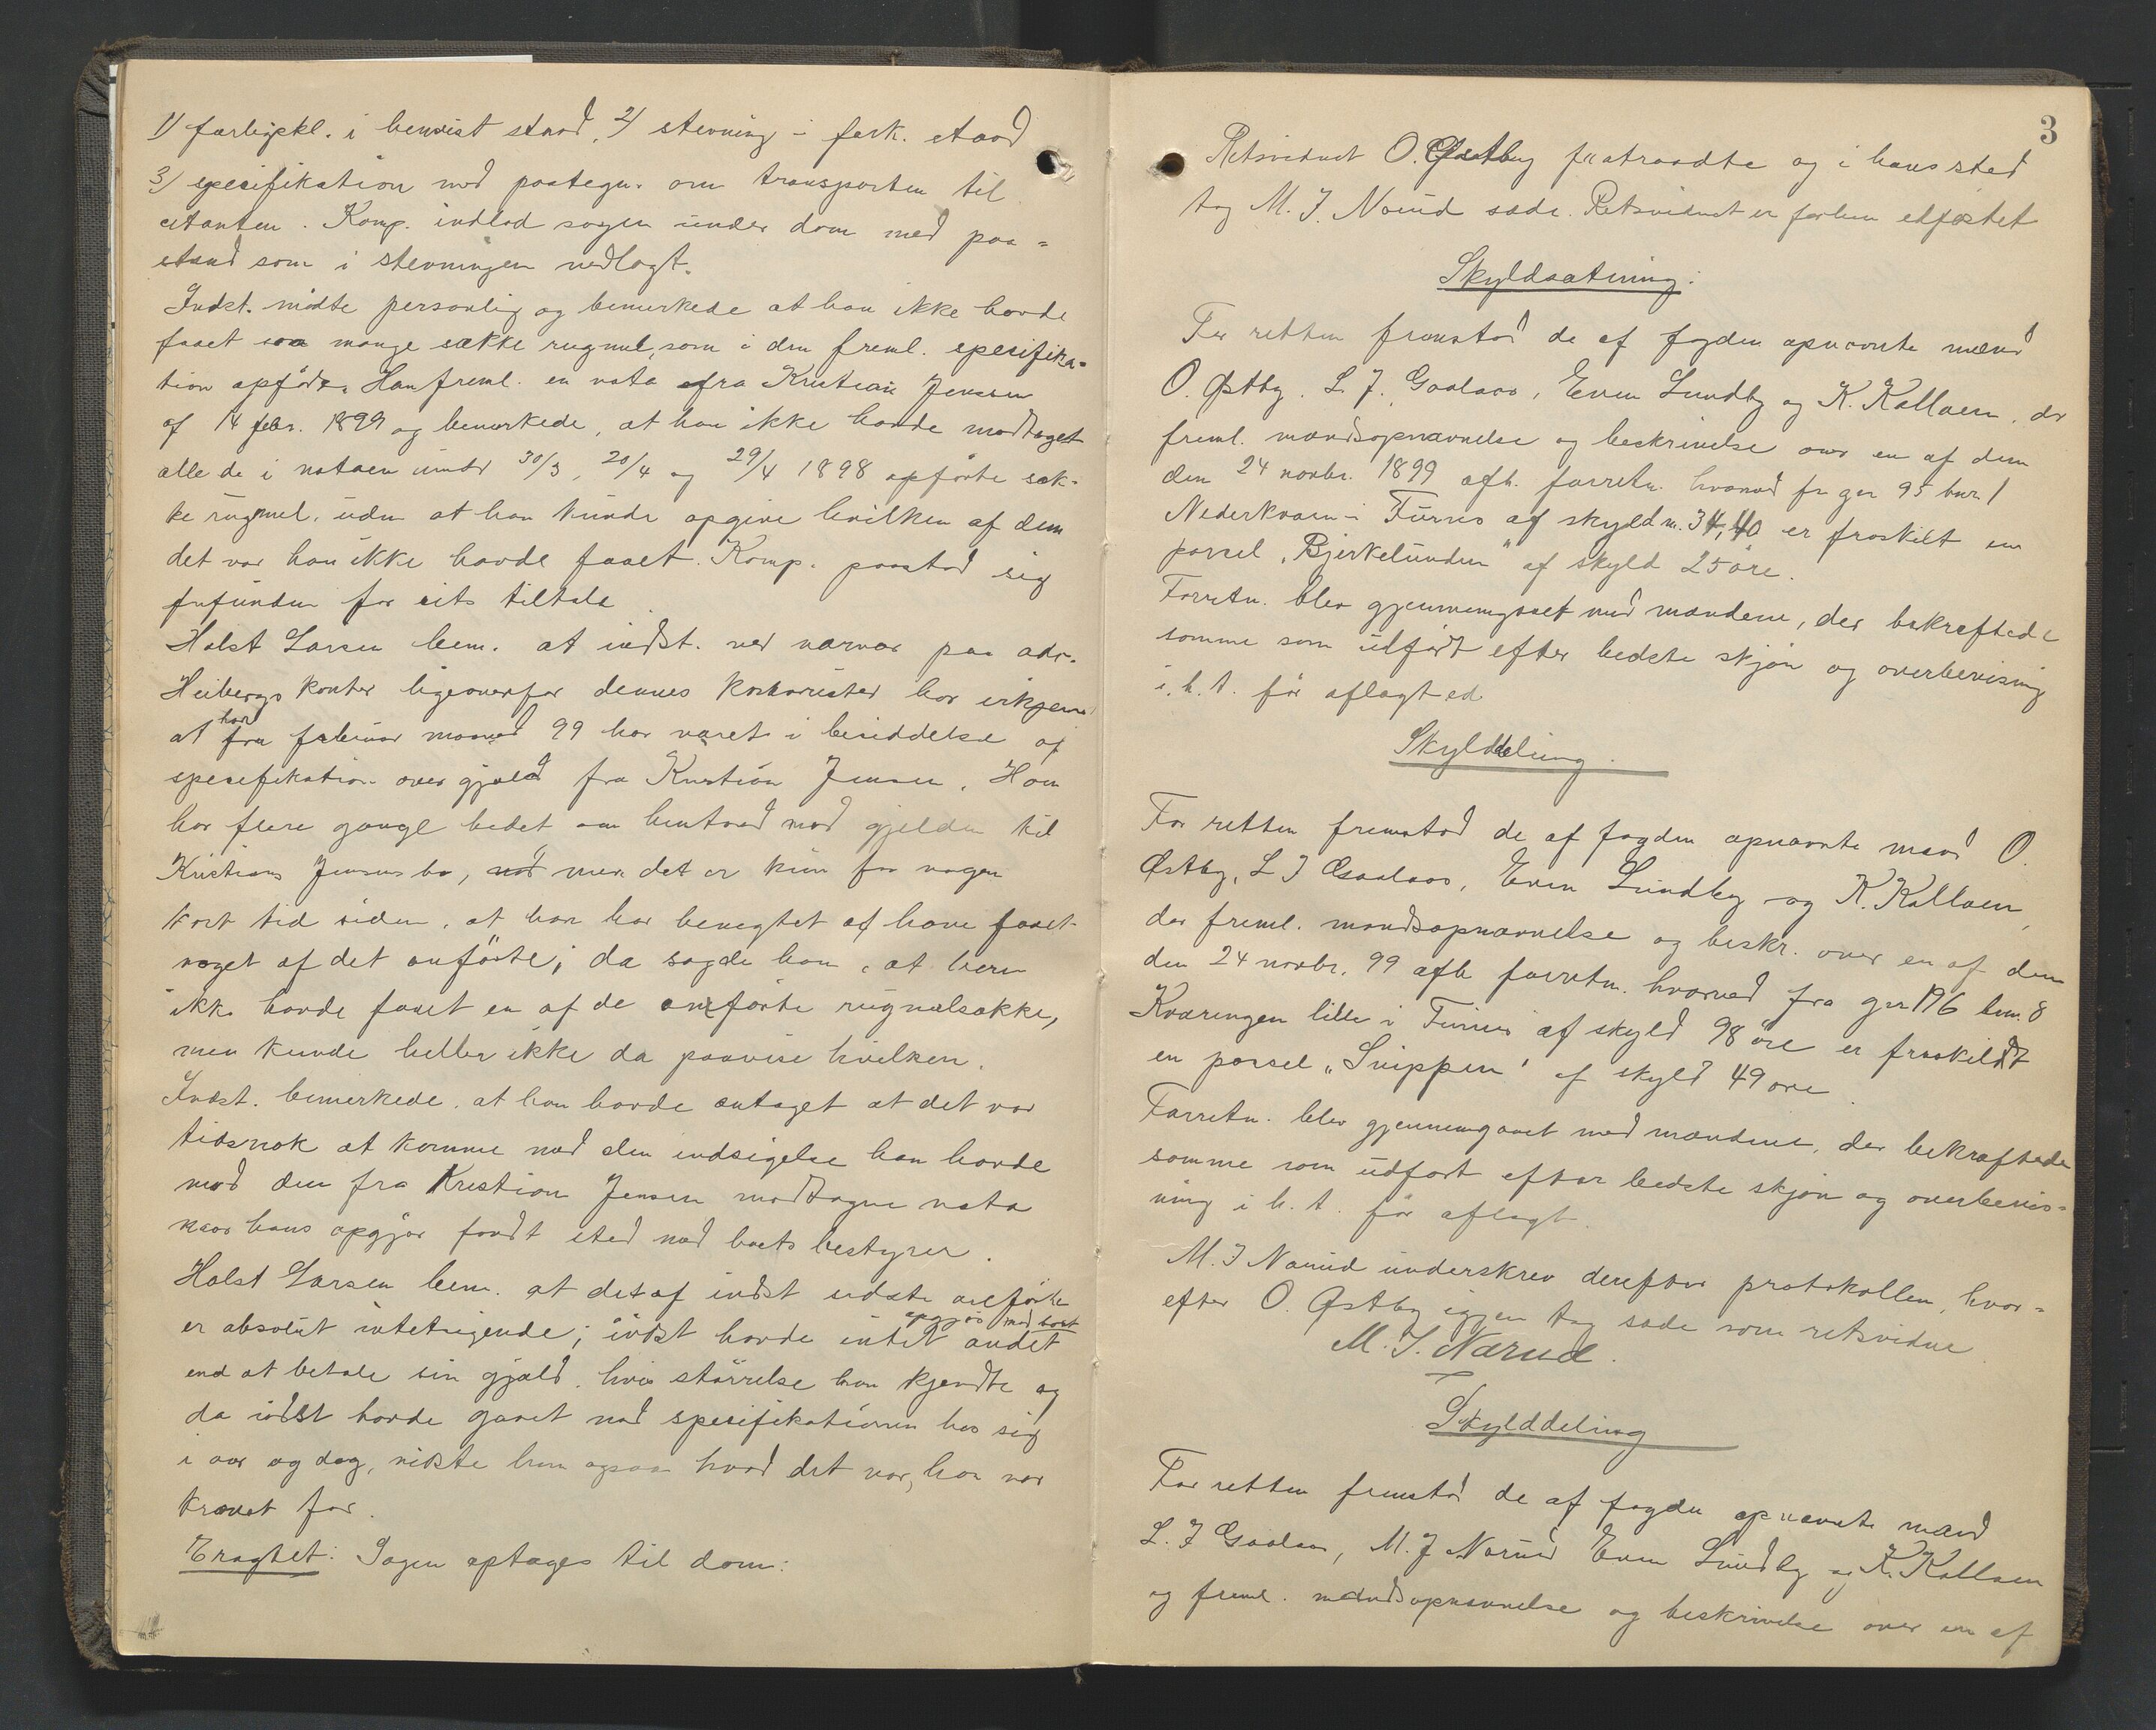 1) forligskl. i henvist stand, 2) stevning i fork. stand
3) specifikation med paategn. om transporten til
citanten. Komp. indlod sagen under dom med paa=
stand som i stevningen nedlagt.
Indst. mødte personlig og bemerkede at han ikke havde
faaet saa mange sække rugmel, som i den freml. spesifika=
tion opført. Han freml. en nota fra Kristian Jensen
af 14 febr. 1899 og bemerkede, at han ikke havde modtaget
alle de i notaen under 30/3, 20/4 og 29/4 1898 opførte sæk-
ke rugmel, uden at han kunde opgive hvilken af dem
det var han ikke havde faaet. Komp. paastod sig
frifunden for cits tiltale
Holst Larsen bem. at indst. ved nærvær paa adv.
Heibergs kontor ligeoverfor dennes kontorister har erkjend
at han fra februar maaned 99 har været i besiddelse af
spesifikation over gjæld fra Kristian Jensen. Han
har flere gange bedet om henstand med gjelden til
Kristian Jensens bo, men det er kun for nogen
kort tid siden, at han har benegtet at have faaet
noget af det anførte; da sagde han, at han
ikke havde faaet en af de anførte rugmelsække,
men kunde heller ikke da paavise hvilken.
Indst. bemerkede, at han havde antaget at det var
tidsnok at komme med den indsigelse han havde
mod den fra Kristian Jensen modtagne nota
naar hans opgjør fandt sted med boets bestyrer.
Holst Larsen bem. at det af indst sidste anførte
er absolut intetsigende; indst havde intet andet opgjør med boet
end at betale sin gjæld, hvis størrelse han kjendte og
da indst havde gaaet med spesifikationen hos sig
i aar og dag, vidste han ogsaa hvad det var, han var
krævet for.
Eragtet: Sagen optages til dom:
3
Retsvidnet O. Østby fratraadte og i hans sted
tog M. J. Narud sæde. Retsvidnet er forhen edfæstet
Skyldsætning:
For retten fremstod de af fogden opnævnte mænd
O. Østby, L. J. Gaalaas, Even Lundby og K. Kallaen, der
freml. mandsopnævnelse og beskrivelse over en af dem
den 24 novbr. 1899 afh. forretn. hvorved fr gr 95 bnr 1
Nederkvaen i Furnes af skyld m. 34,40 er fraskilt en
parsel „Bjerkelunden" af skyld 25 øre.
Forretn. blev gjennemgaaet med mændene, der bekræftede
samme som udført efter bedste skjøn og overbevisning
i. h. t. før aflagt ed
Skylddeling.
For retten fremstod de af fogden opnævnte mænd O.
Østby, L J Gaalaas, Even Lundby og K. Kallaen,
der freml. mandsopnævnelse og beskr. over en af dem
den 24 novbr. 99 afh forretn. hvorved fra gr 196 bnr. 8
Kværingen lille i Furnes af skyld 98 øre er fraskildt
en parsel „Snippen" af skyld 49 øre
Forretn. blev gjennemgaaet med mændene, der bekræftede
samme som udført efter bedste skjøn og overbevis=
ning i h. t. før aflagt
M. J Narud underskrev derefter protokollen, hvor=
efter O. Østby igjen tog sæde som retsvidne
M. J. Narud.
Skylddeling
For retten fremstod de af fogden opnævnte mænd
L. J Gaalaas, M. J Narud Even Lundby og K. Kallaen
og freml. mandsopnævnelse og beskrivelse over en af